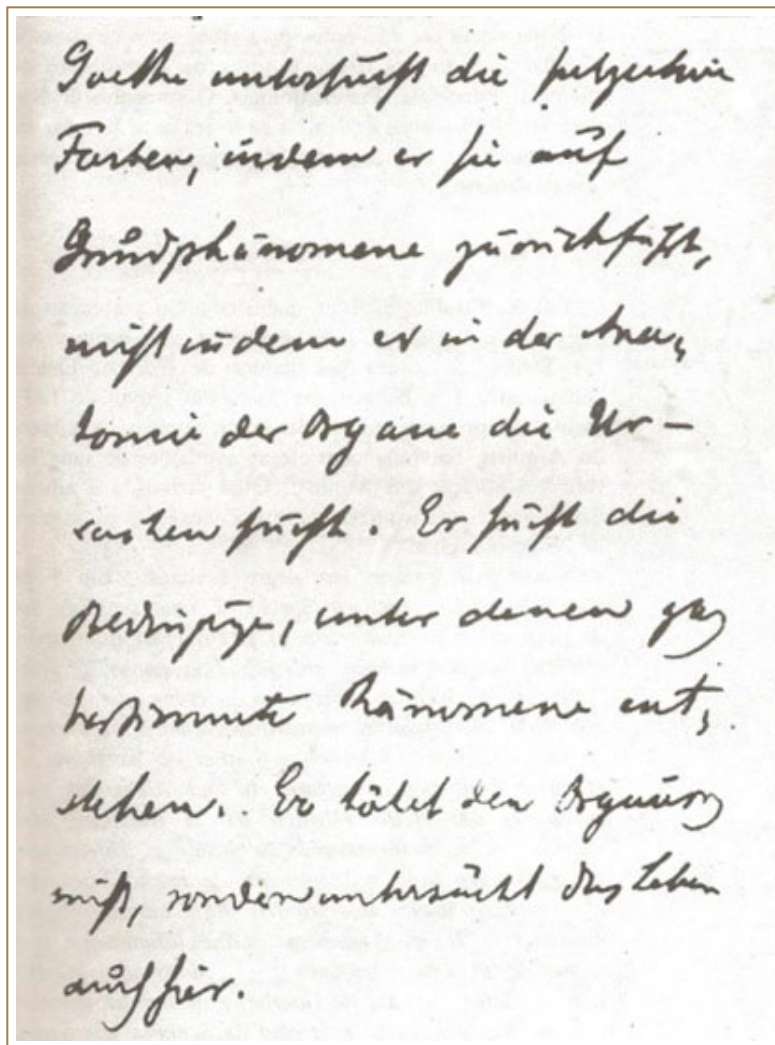 Goethe untersucht die subjective
Farben, indem er sie auf
Grundphänomene zurückführt,
nicht indem er in der Ana-
tomie der Organe die Ur-
sachen sucht. Er sucht die
unter denen ganz
bestimmte Phänomene ent-
stehen. Er tötet den
nicht, sondern untersucht das Leben
auch hier.